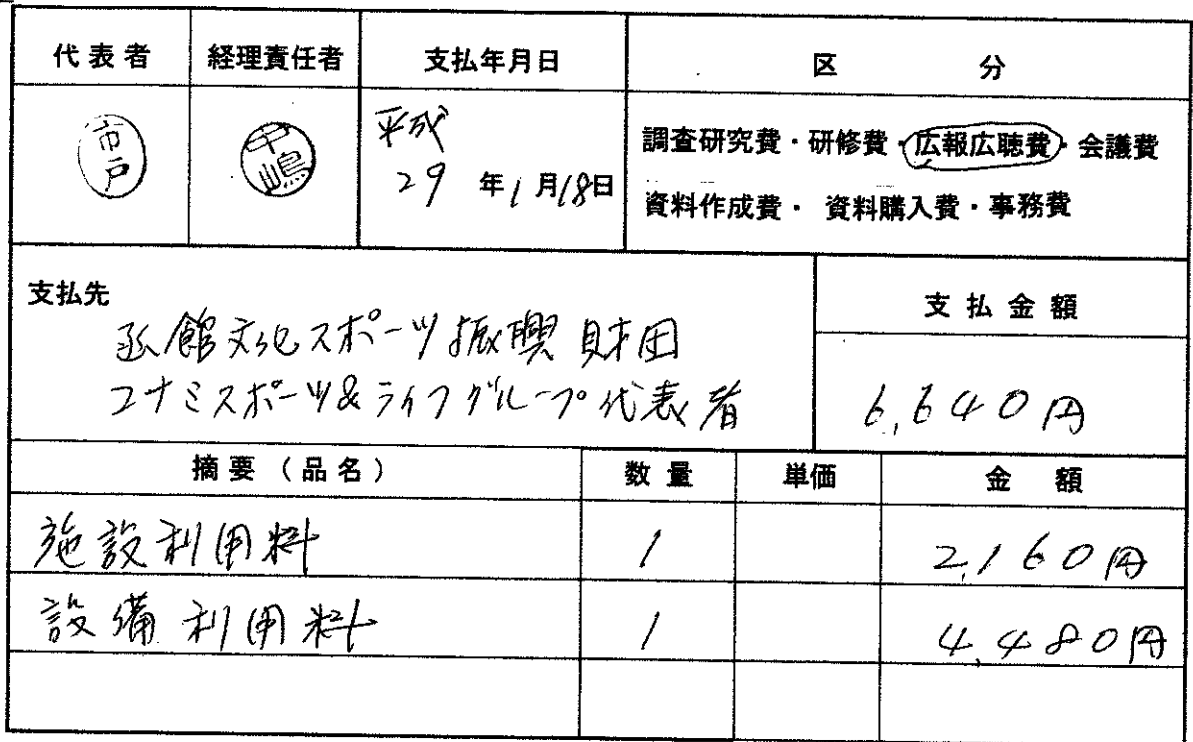 代表者 経理責任者 支払年月日 区 分
市戸 中嶋 平成 29 年 1 月 18 日 調査研究費・研修費・広報広聴費・会議費
資料作成費・ 資料購入費・事務費
支払先 支払金額
函館文化スポーツ振興財団
コナミスポーツ&ライフグループ代表者 6,640円
摘要(品名) 数量 単価 金 額
施設利用料 1 2,160円
設備利用料 1 4,480円